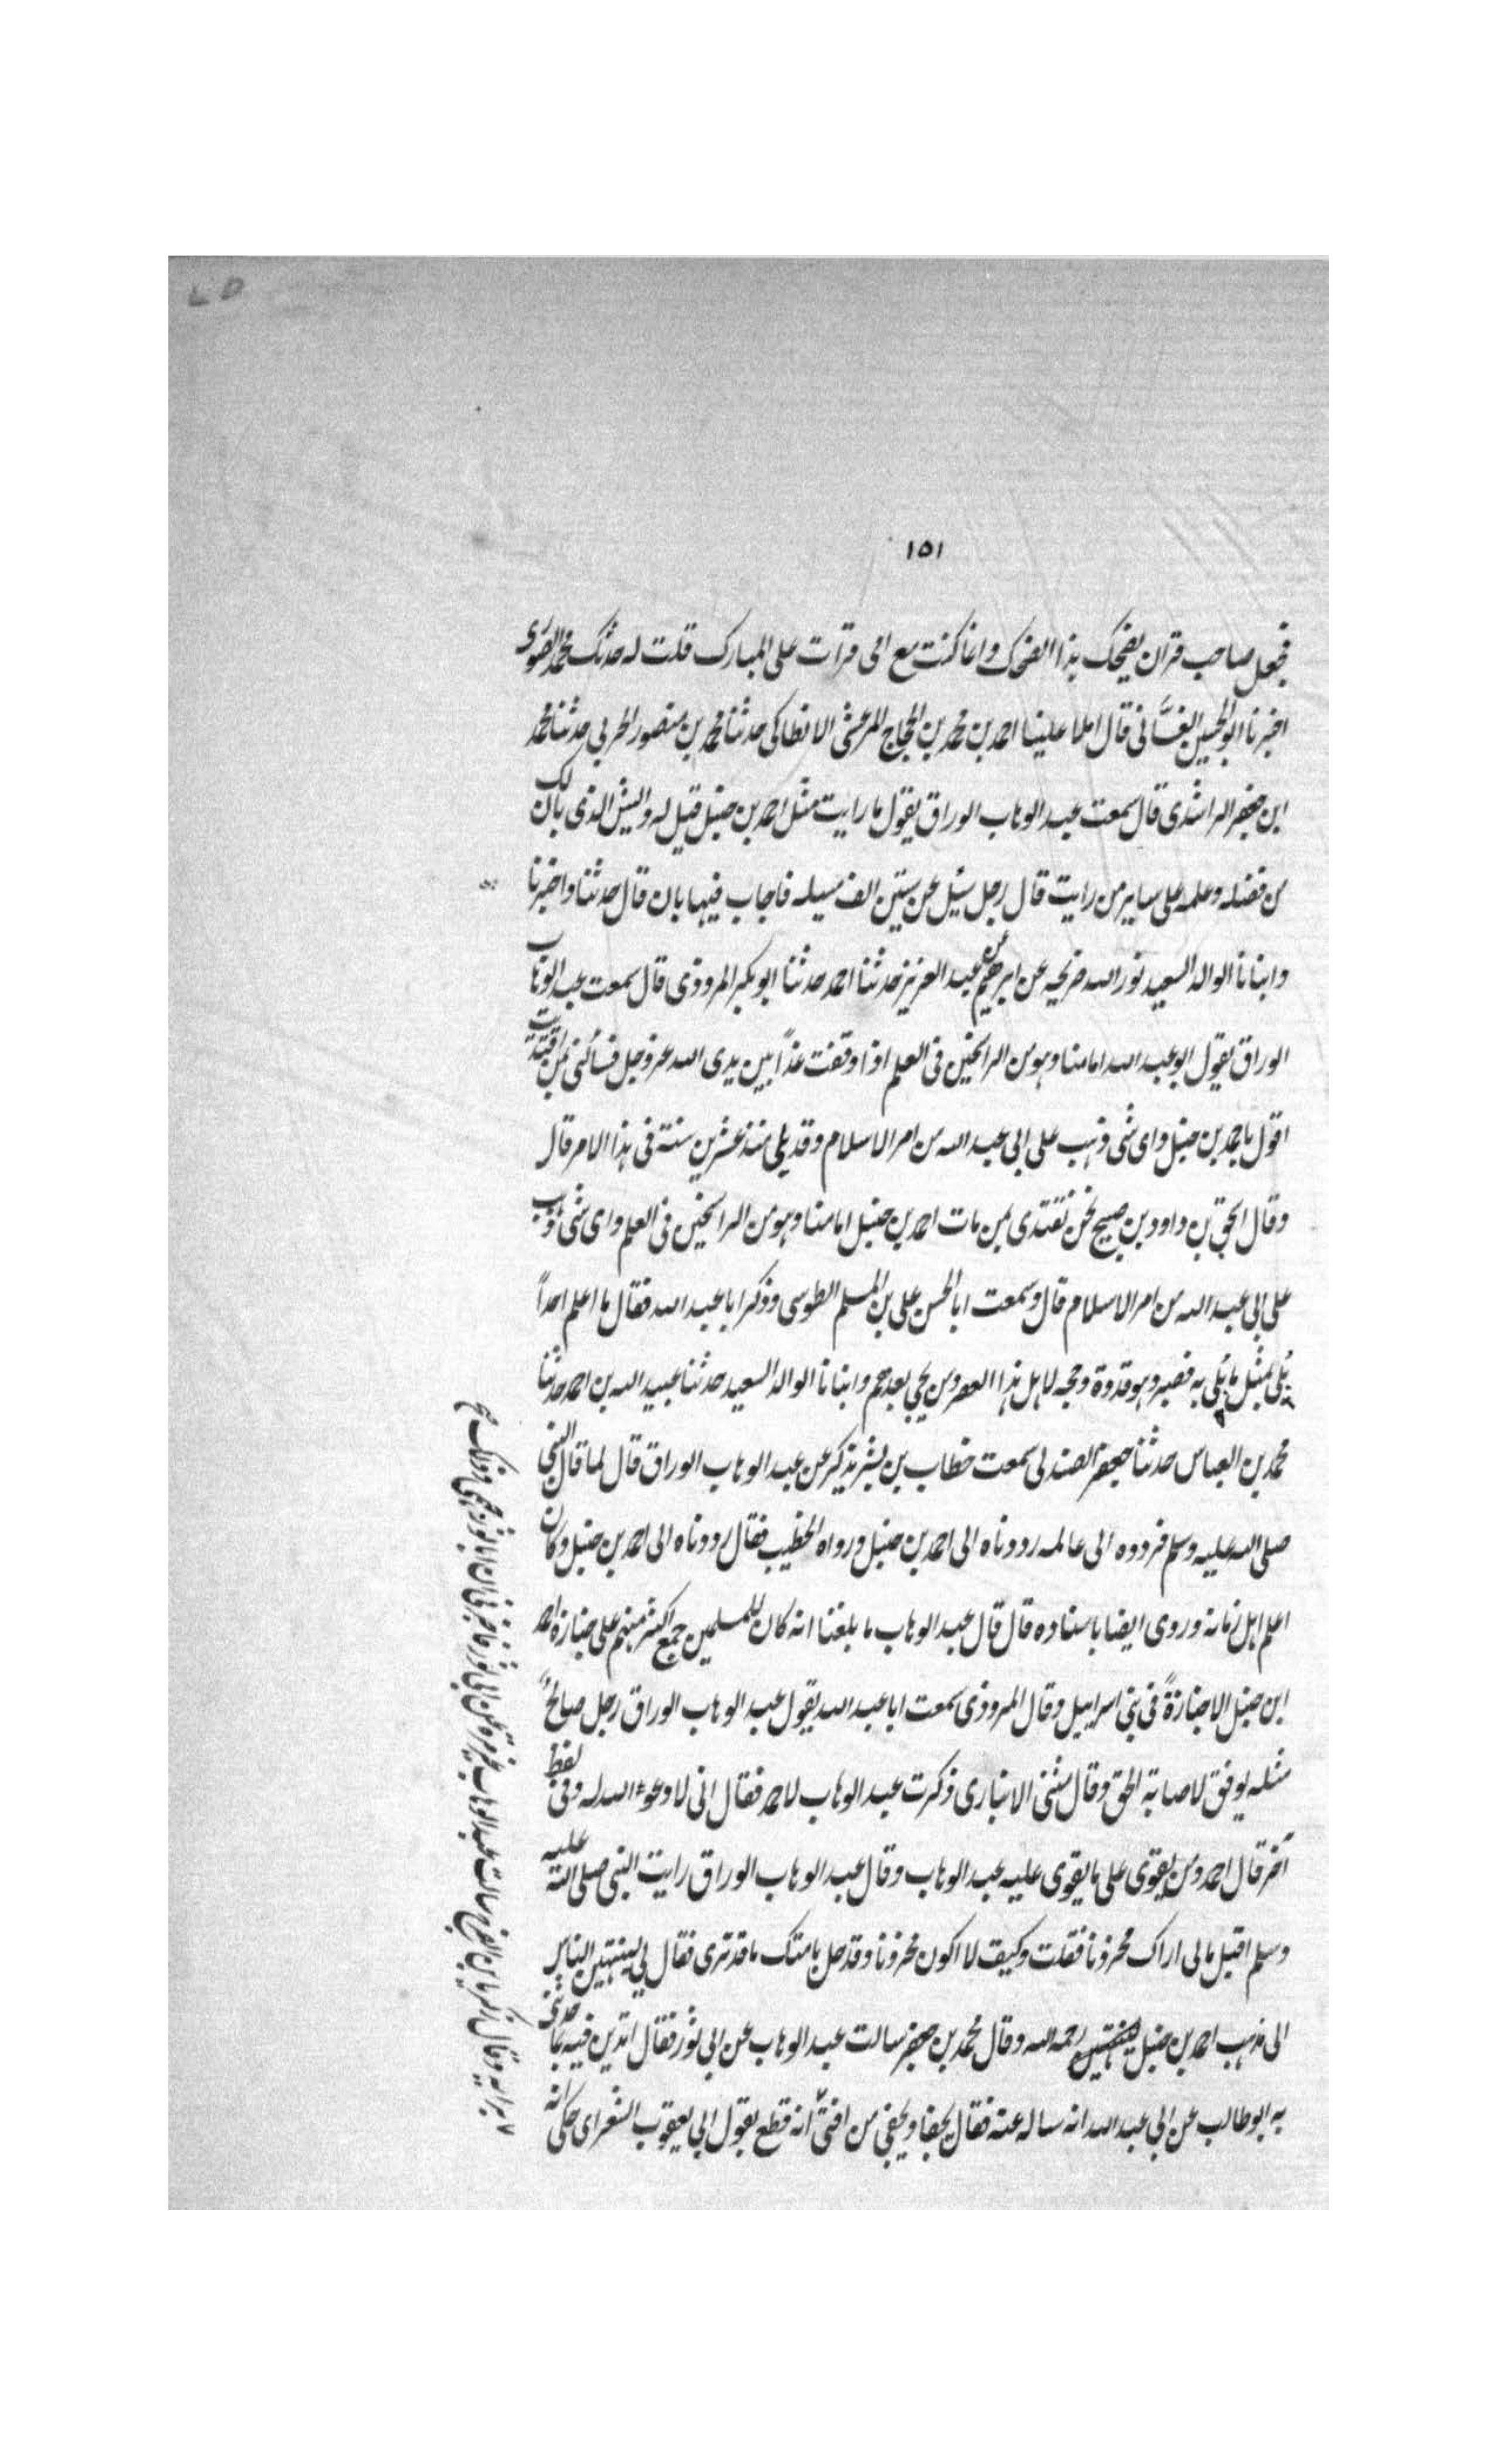 ١٥١
فجعل صاحب قران يضحك بهذا الضحك وانما كنت مع اخى قرات على المبارك قلت له حدثك محمد الصورى
اخبرنا ابو الحسين الغسَّانى قال املا علينا احمد بن محمد بن الحجاج المرعشى الانطاكى حدثنا محمد بن منصور الحربى حدثنا محمد
ابن جعفر الراشدى قال سمعت عبد الوهاب الوراق يقول ما رايت مثل احمد بن حنبل قيل له وايش الذى بان لك
من فضله وعلمه على ساير من رايت قال رجل سئل عن ستين الف مسيله فاجاب فيها بان قال حدثنا واخبرنا
وانبانا الوالد السعيد نور الله ضريحه عن ابرهيم عن عبد العزيز حدثنا احمد حدثنا ابو بكر المروذى قال سمعت عبد الوهاب
الوراق يقول ابو عبد الله امامنا وهو من الراسخين فى العلم اذا وقفت غدًا بين يدى الله عز وجل فسألنى بمن اقتديت
اقول باحمد بن حنبل واى شى ذهب على ابى عبد الله من امر الاسلام وقد بلى منذ عشرين سنة فى هذا الامر قال
وقال اسحق بن داود بن صبيح نحن نقتدى بمن مات احمد بن حنبل امامنا وهو من الراسخين فى العلم واى شى ذهب
على ابى عبد الله من امر الاسلام قال وسمعت ابا الحسن على بن المسلم الطوسى وذكر ابا عبد الله فقال ما اعلم احداً
بُلى بمثل ما بُلى به فصبر وهو قدوة وحجه لاهل هذا العصر ومن يجى بعدهم وانبانا الوالد السعيد حدثنا عبيد الله بن احمد حدثنا
محمد بن العباس حدثنا جعفر الصندلى سمعت خطاب بن بشر يذكر عن عبد الوهاب الوراق قال لما قال النبى
صلى الله عليه وسلم فردوه الى عالمه رددناه الى احمد بن حنبل ورواه الخطيب فقال رددناه الى احمد بن حنبل وكان
اعلم اهل زمانه وروى ايضا باسناده قال قال عبد الوهاب ما بلغنا انه كان للمسلمين جمع اكثر منهم على جنازة احمد
ابن حنبل الا جنازةً فى بنى اسرايل وقال المروذى سمعت ابا عبد الله يقول عبد الوهاب الوراق رجل صالحٌ
مثله يوفق لاصابة الحق وقال مثنى الانبارى ذكرت عبد الوهاب لاحمد فقال انى لادعوء الله له وفى لفظ
آخر قال احمد ومن يقوى على ما يقوى عليه عبد الوهاب وقال عبد الوهاب الوراق رايت النبى صلى الله عليه
وسلم اقبل مالى اراك محزونا فقلت وكيف لا اكون محزونا وقد حل بامتك ما قد ترى فقال لى لينتهين الناس
الى مذهب احمد بن حنبل رحمه الله وقال محمد بن جعفر سالت عبد الوهاب عن ابى ثور فقال اتدين فيه بما حدثنى
به ابو طالب عن ابى عبد الله انه ساله عنه فقال يجفا ويجفى من افتىّ انه قطع بقول ابى يعقوب الشعراى حكى انه
برايه وقال زكريا بن الفرج سالت عبد الوهاب غير مرة عن ابى ثور فاخبرنى ان ابا ثور جهمى وذلك